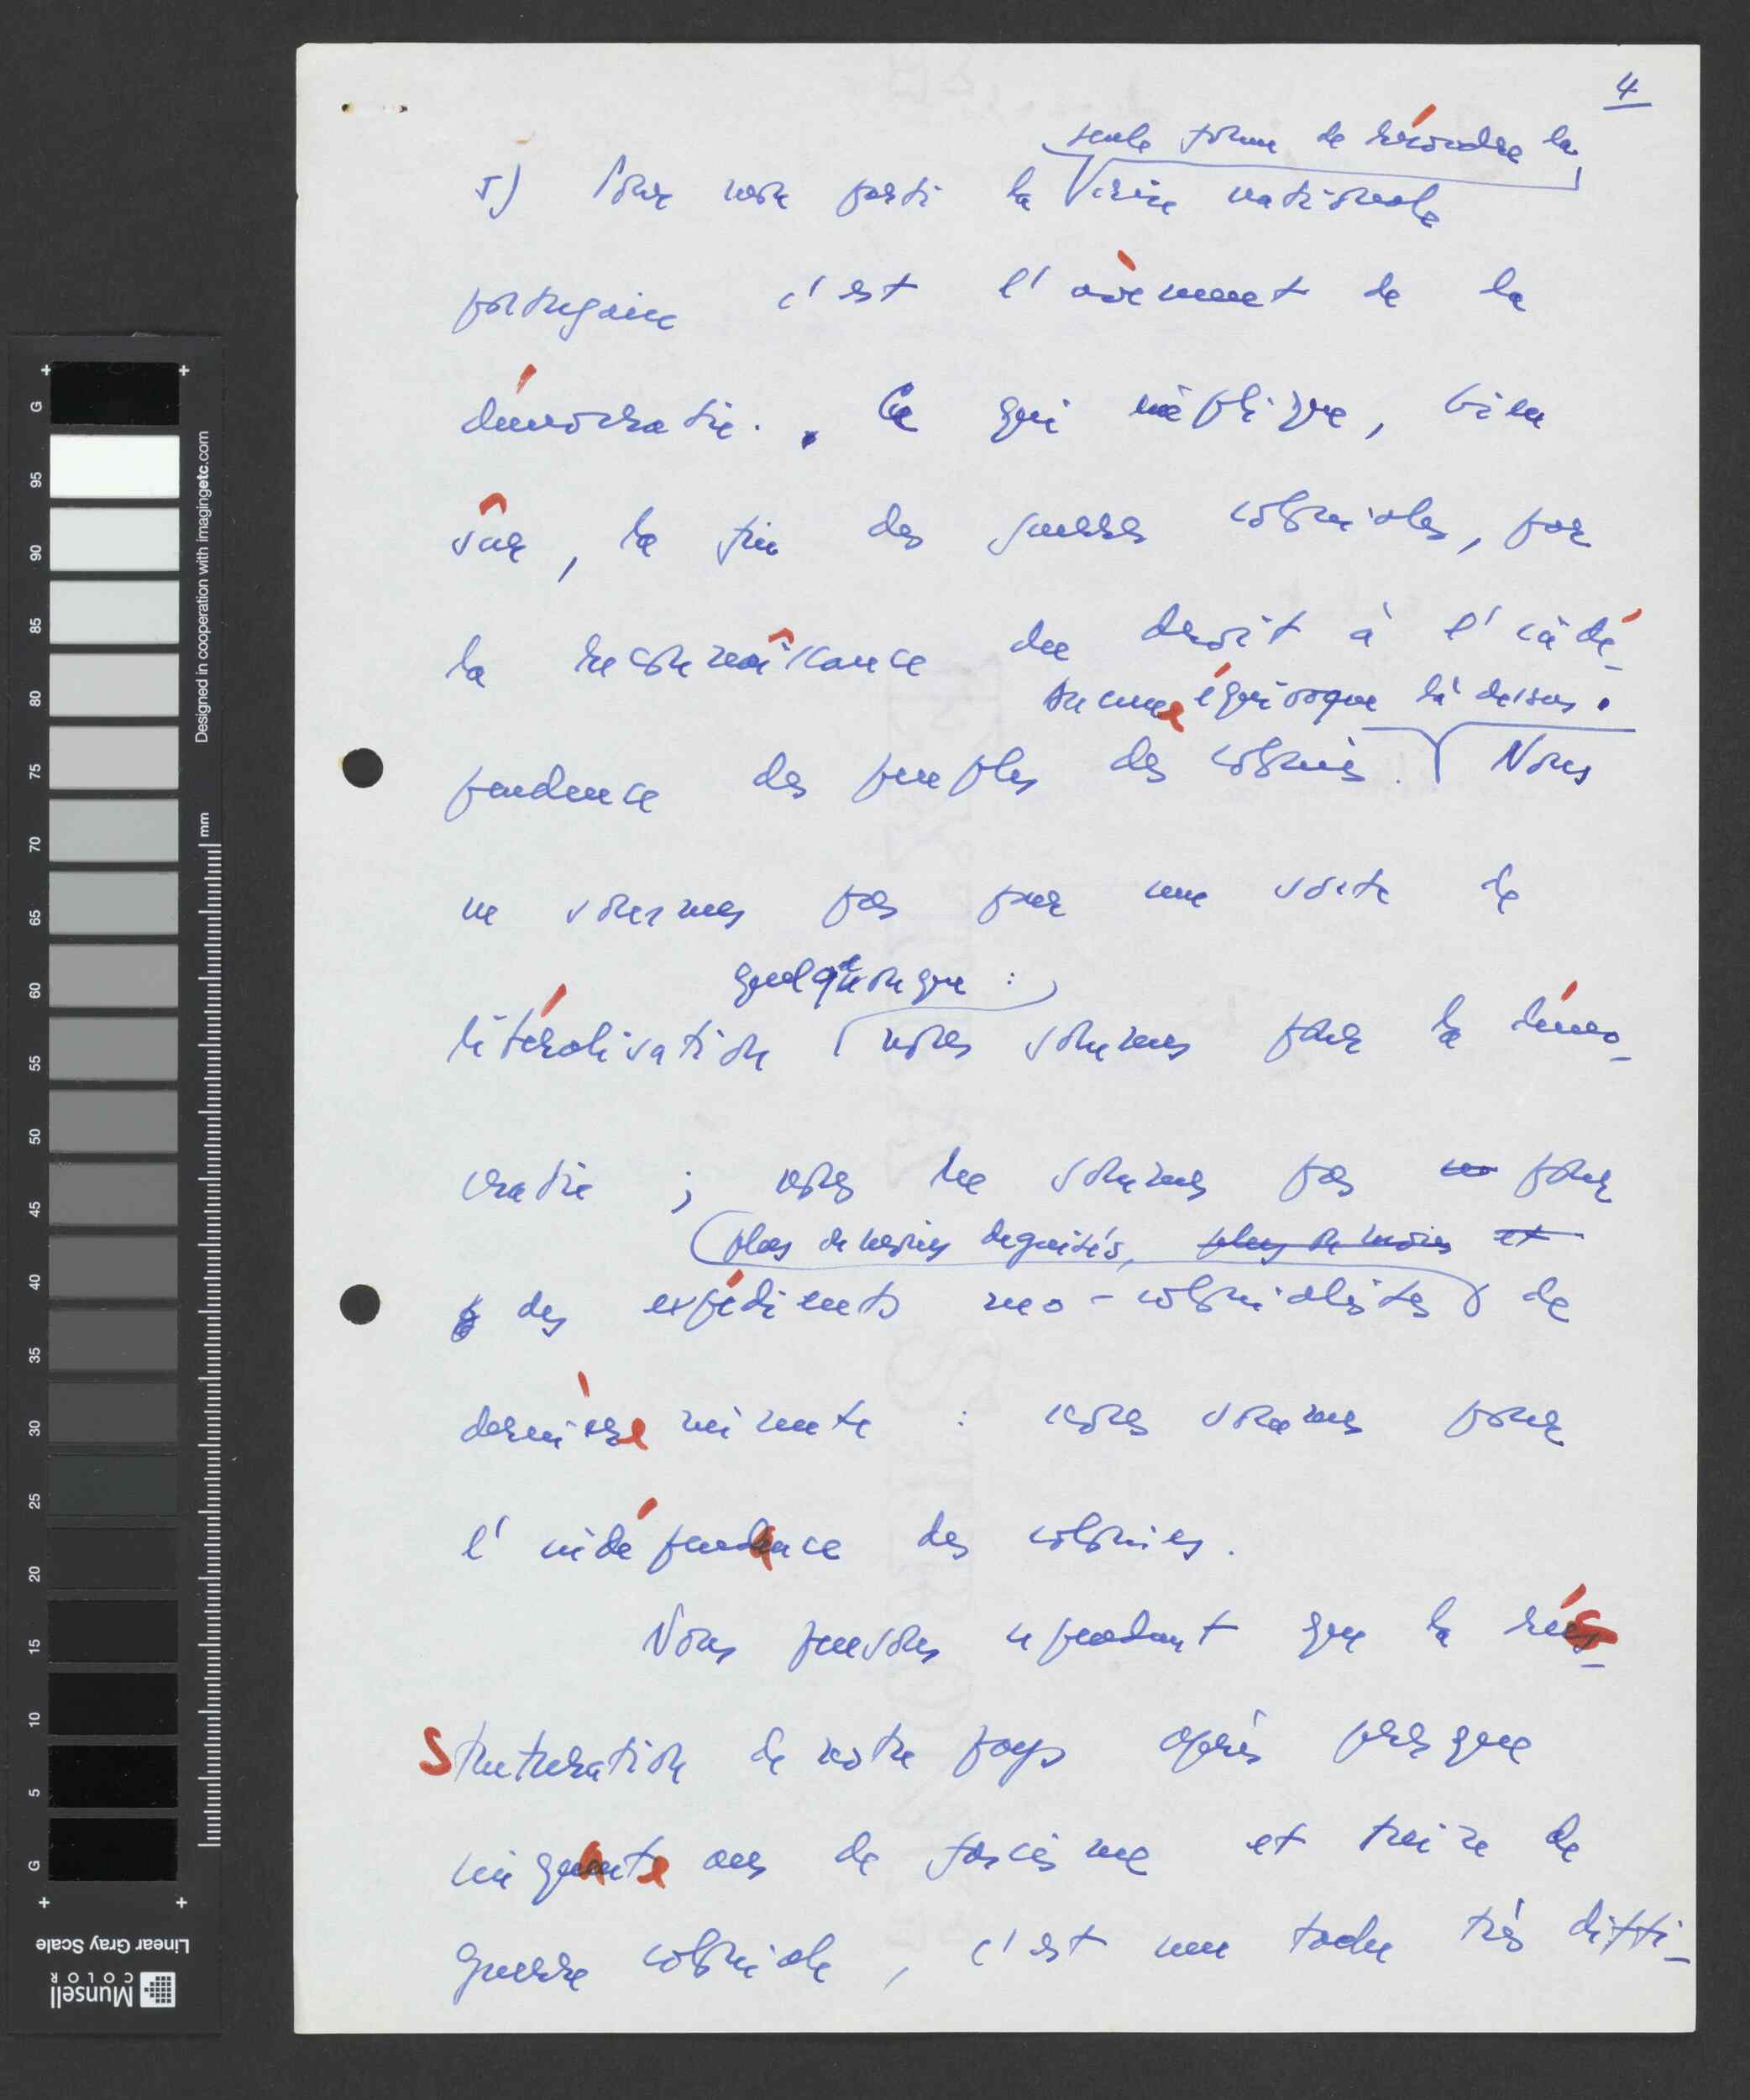 4
seule forme de résoudre la
5) Pour mon parti la crise nationale
portugaise c'est l'avènement de la
démocratie. Ce qui implique, bien
sûr, la fin des guerres coloniales, par
la reconnaissance du droit à l'indé-
aucune équivoque là dessus.
pendence des peuples des colonies. Nous
ne sommes pas pour une sorte de
quelquonque :
libéralisation nous sommes pour la démo-
cratie ; nous ne sommes pas pour
plus de moins deguisés, plus de moins et
des expédients neo-colonialistes de
dernière minute : nous sommes pour
l'indépendance des colonies.
Nous pensons cependant que la rés-
truturation de notre pays après presque
cinquante ans de fascisme et treize de
guerre coloniale, c'est une tache très diffi-
G
95
90
85
80
75
70
65
60
55
50
45
40
35
30
25
20
15
10
5
G
mm
Designed in cooperation with imagingetc.com
Linear Gray Scale
Munsell
COLOR